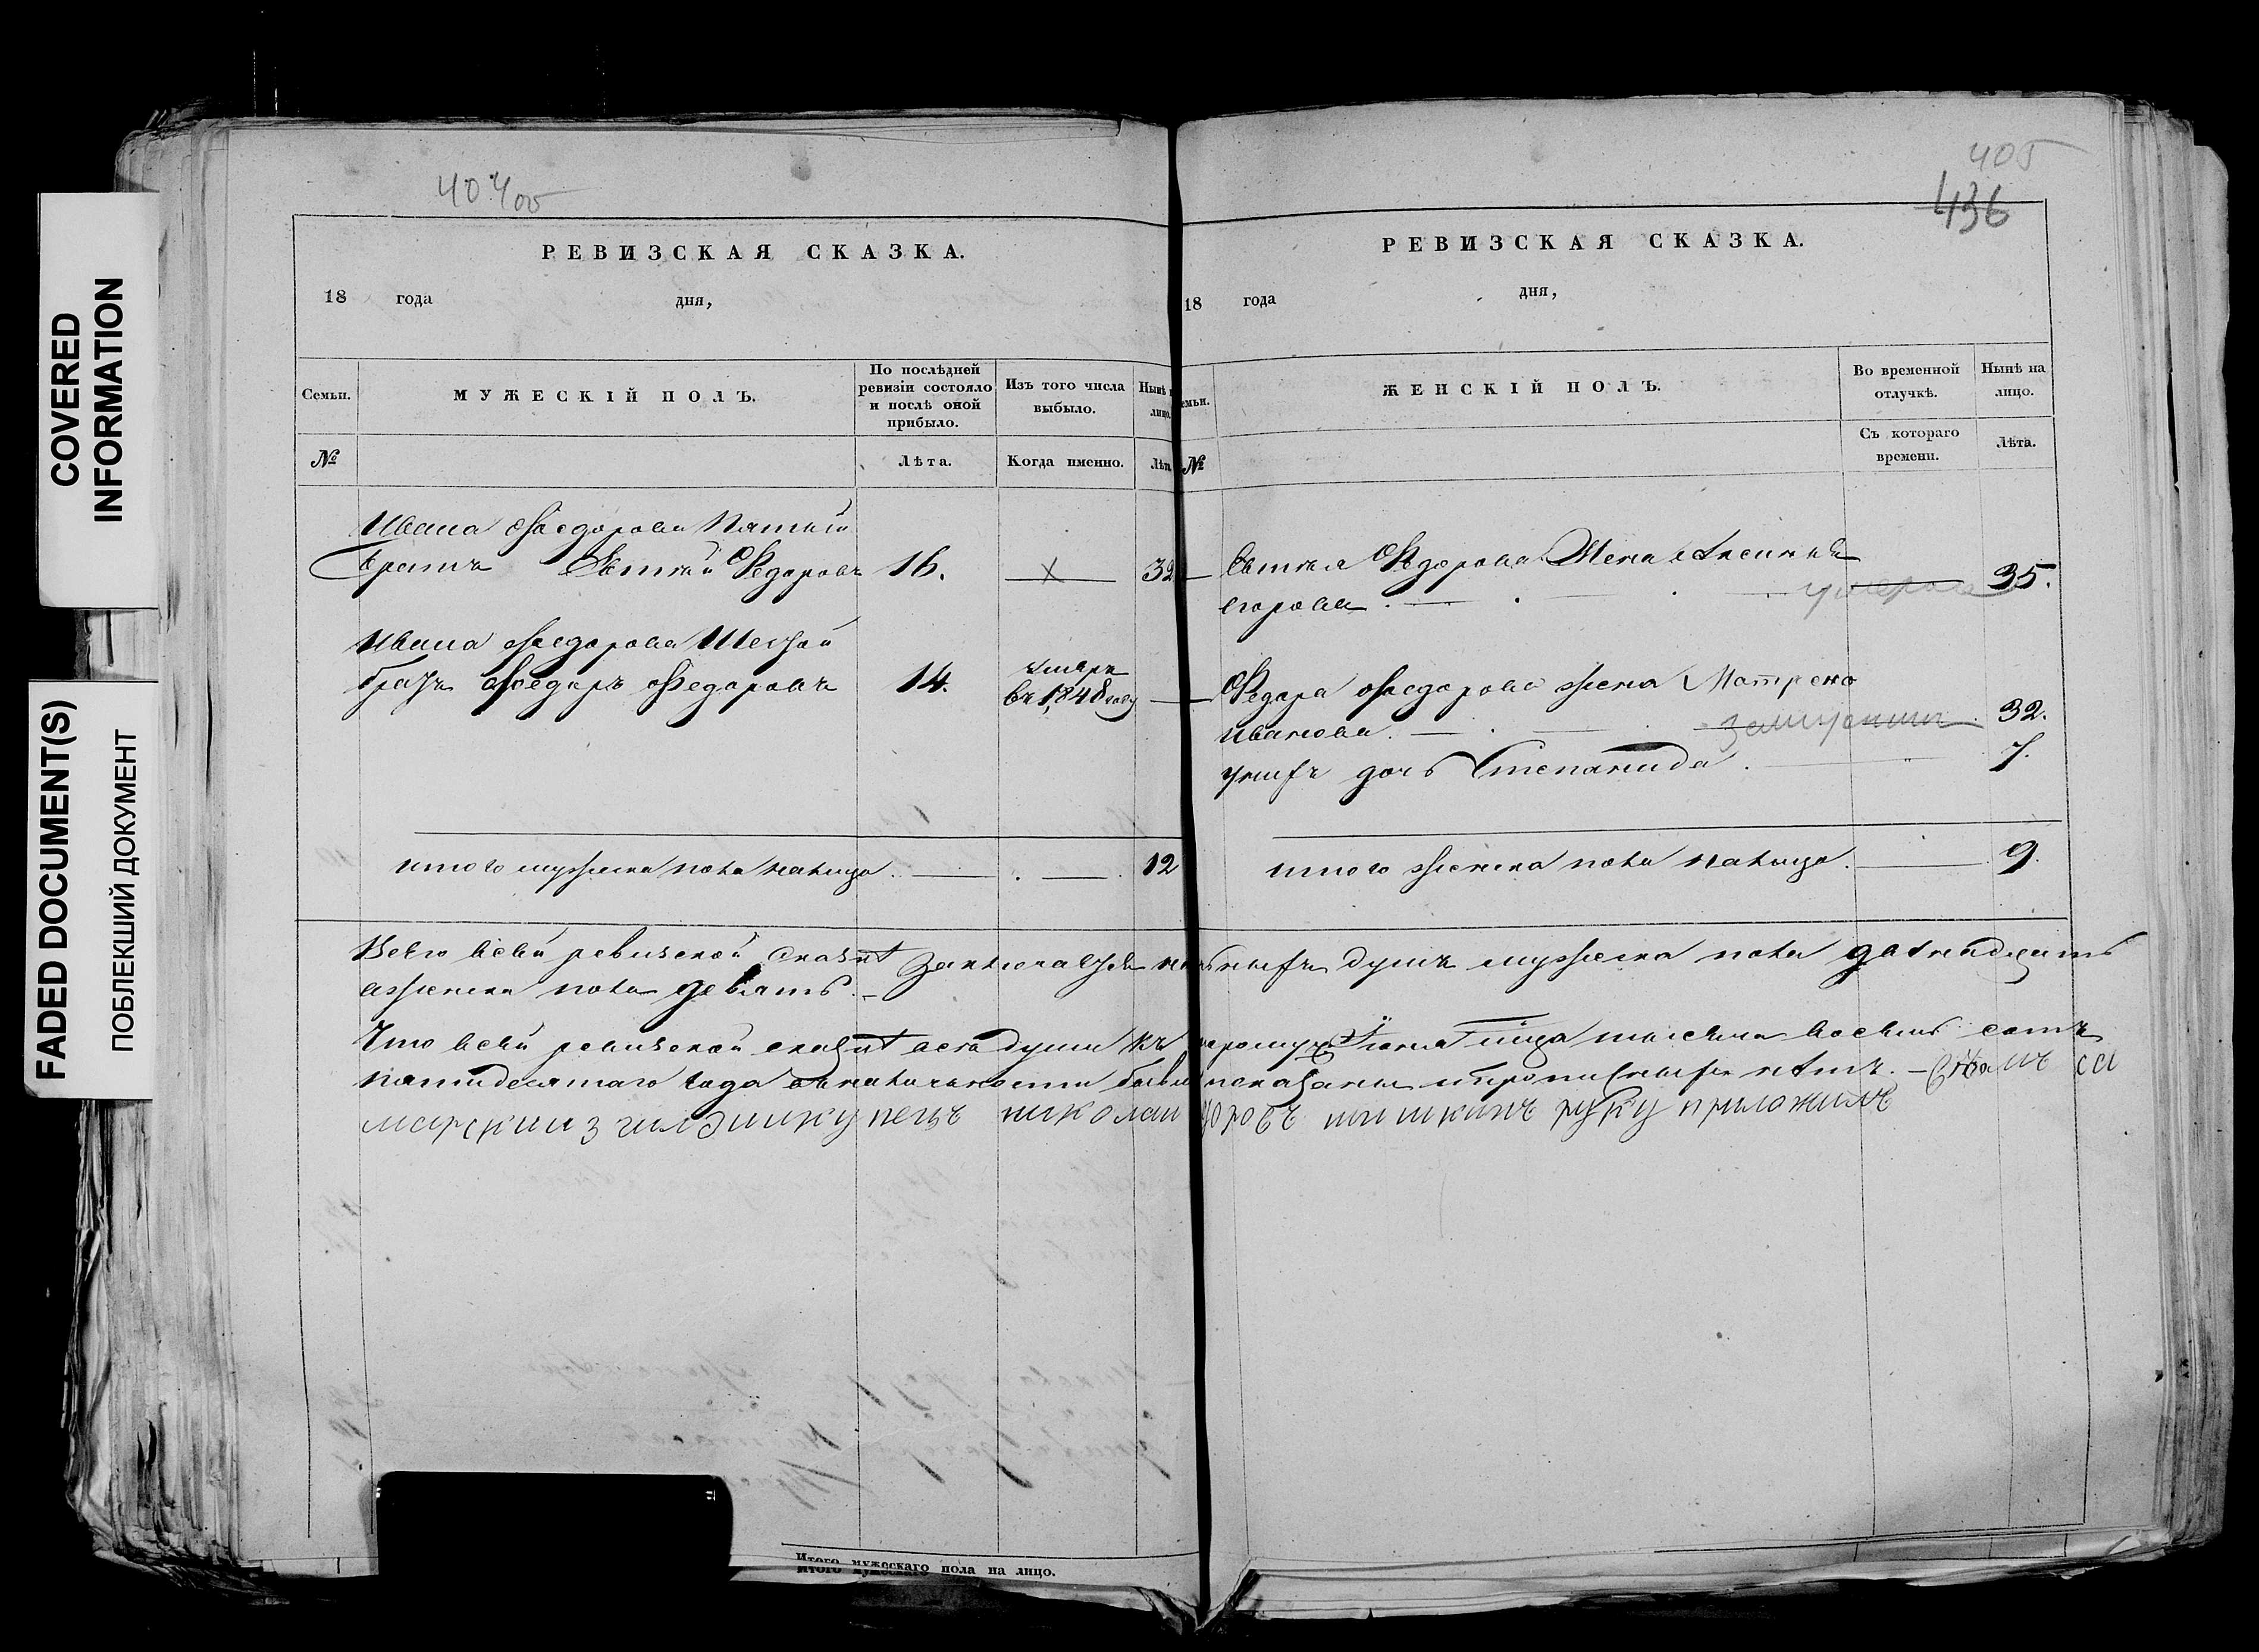 COVERED
INFORMATION
FADED DOCUMENT(S)
ПОБЛЕКШИЙ ДОКУМЕНТ
РЕВИЗСКАЯ СКАЗКА.
18 года дня,
Семьи. МУЖЕСКІЙ ПОЛЪ. По послѣдней ревизіи состояло и послѣ оной прибыло. Изъ того числа выбыло. Нынѣ лицо.
№ Лѣта. Когда именно. Лѣта
Ивана Федорова Пятый
братъ Федоровъ 16. 32
Ивана Федорова Шестой
братъ Федоръ Федоровъ 14. умеръ въ 1848 году
итого мужеска пола налицо 12
405
436
РЕВИЗСКАЯ СКАЗКА.
18 года дня,
емьи. ЖЕНСКІЙ ПОЛЪ. Во временной отлучкѣ. Нынѣ на лицо.
№ Съ котораго времени. Лѣта.
Федорова Жена Аксинья
егорова. умерла 35.
Федора Федорова жена Матрена
Иванова. 32.
унихъ дочь Степанида. 7.
итого женска пола налицо. 9.
Всего всей ревизской сказкѣ Заключается наличныхъ душъ мужеска пола двѣнадцать
аженска пола девять.
Что всей ревизской сказкѣ всѣ души къ тысяча восемь сотъ
пятидесятаго года бывшіе показаны и прописныхъ нѣтъ. – Къ сей са
марский 3 гилдии купецъ николай рукѹ приложилъ
Итого мужескаго пола на лицо.